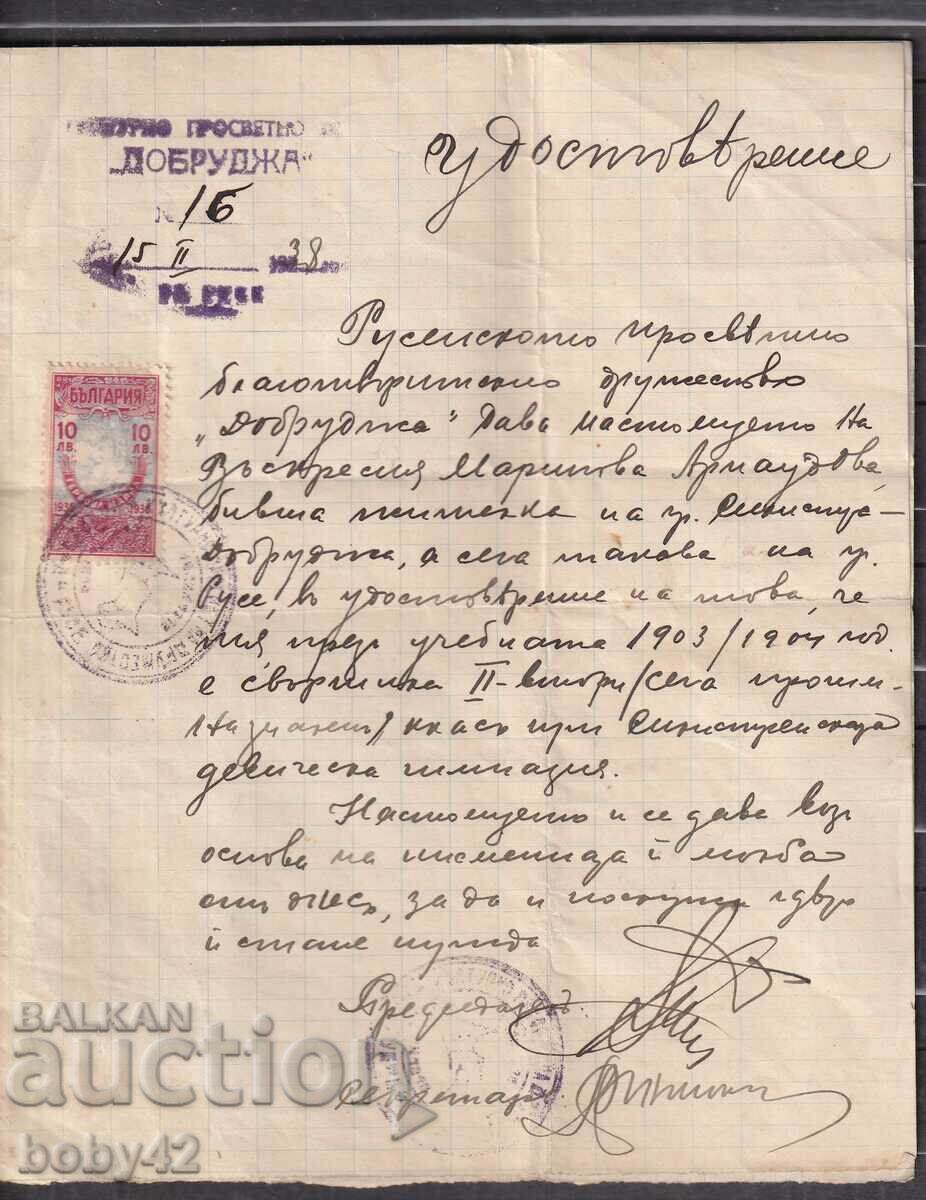 ПРОСВЕТНО
„ДОБРУДЖА“
№ 16
15 II 1938
РУСЕ
Удостовѣрение
БЪЛГАРИЯ
10 ЛВ. 10 ЛВ.
1938
Русенското просвѣтно
благотворително дружество
„Добруджа“ дава настоящето на
Въскресия Маринова Арнаудова,
бивша жителка на гр. Силистра-
Добруджа, а сега такава на гр.
Русе, въ удостовѣрение на това, че
тя презъ учебната 1903/1904 год.
е свършила II-втори /сега прогим-
назиаленъ/ класъ при Силистренската
девическа гимназия.
Настоящето и се дава възъ
основа на писмената ѝ молба
отъ днесь, за да и послужи гдѣто
ѝ стане нужда
Председатель
Секретарь
BALKAN
auction
boby42